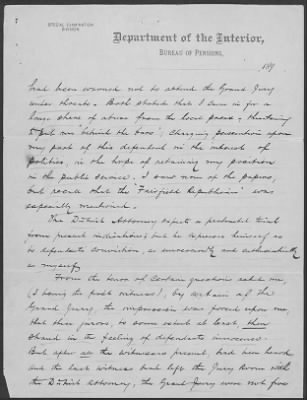 SPECIAL EXAMINATION
DIVISION.
Department of the Interior,
BUREAU OF PENSIONS,
189
had been warned not to attend the Grand Jury
under threats. Both stated that I came in for a
large share of abuse from the local press, threatening
to put me "behind the bars", charging persecution upon
my part of this defendant in the interest of
politics, in the hope of retaining my position
in the public service. I saw none of the papers,
but recall that the "Fairfield Republican" was
especially mentioned.
The District Attorney expects a protracted trial
from present indications, but he expresses himself as
to defendants conviction, as
as myself.
From the tenor of certain questions asked me,
(I being the first witness), by certain of the
Grand Jury, the impression was forced upon me,
that these jurors, to some extent at least, then
shared in the feeling of defendants innocence.
But after all the witnesses present, had been heard
and the last witness had left the Jury Room with
the District Attorney, the Grand Jury were not five